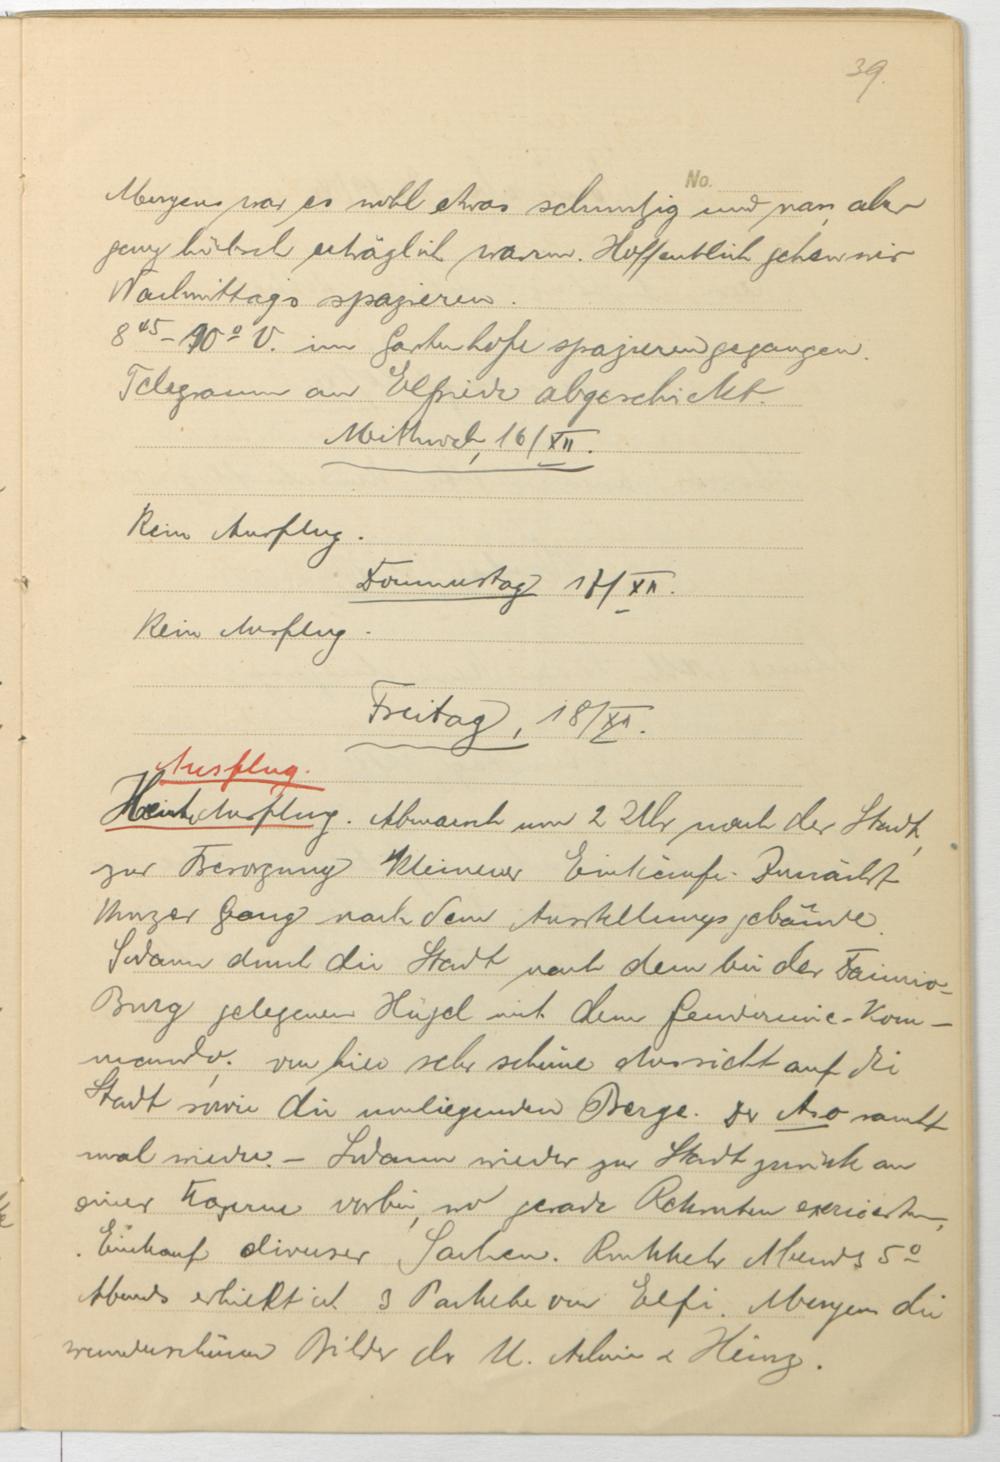 39.
No.
Morgens war es wohl etwas schmutzig und nass, aber
ganz hübsch erträglich warm. Hoffentlich gehen wir
Nachmittags spazieren.
8⁴⁵–10⁰ V. im Gartenhofe spazieren gegangen.
Telegramm an Elfriede abgeschickt.
Mittwoch, 16/XII.
Kein Ausflug.
Donnerstag 17/XII.
Kein Ausflug.
Freitag, 18/XII.
Ausflug.
Heute Ausflug. Abmarsch um 2 Uhr nach der Stadt,
zur Besorgung kleinerer Einkäufe. Zunächst
kurzer Gang nach dem Ausstellungsgebäude.
Sodann durch die Stadt nach dem bei der Daimio-
Burg gelegenen Hügel mit dem Gendarmerie-Kom-
mando; von hier sehr schöne Aussicht auf die
Stadt sowie die umliegenden Berge. Der Aso raucht
mal wieder. – Sodann wieder zur Stadt zurück an
einer Kaserne vorbei, wo gerade Rekruten exerzierten,
Einkauf diverser Sachen. Rückkehr Abends 5⁰
Abends erhielt ich 3 Pakete von Elfi. Morgen die
wunderschönen Bilder der U. Heinz.